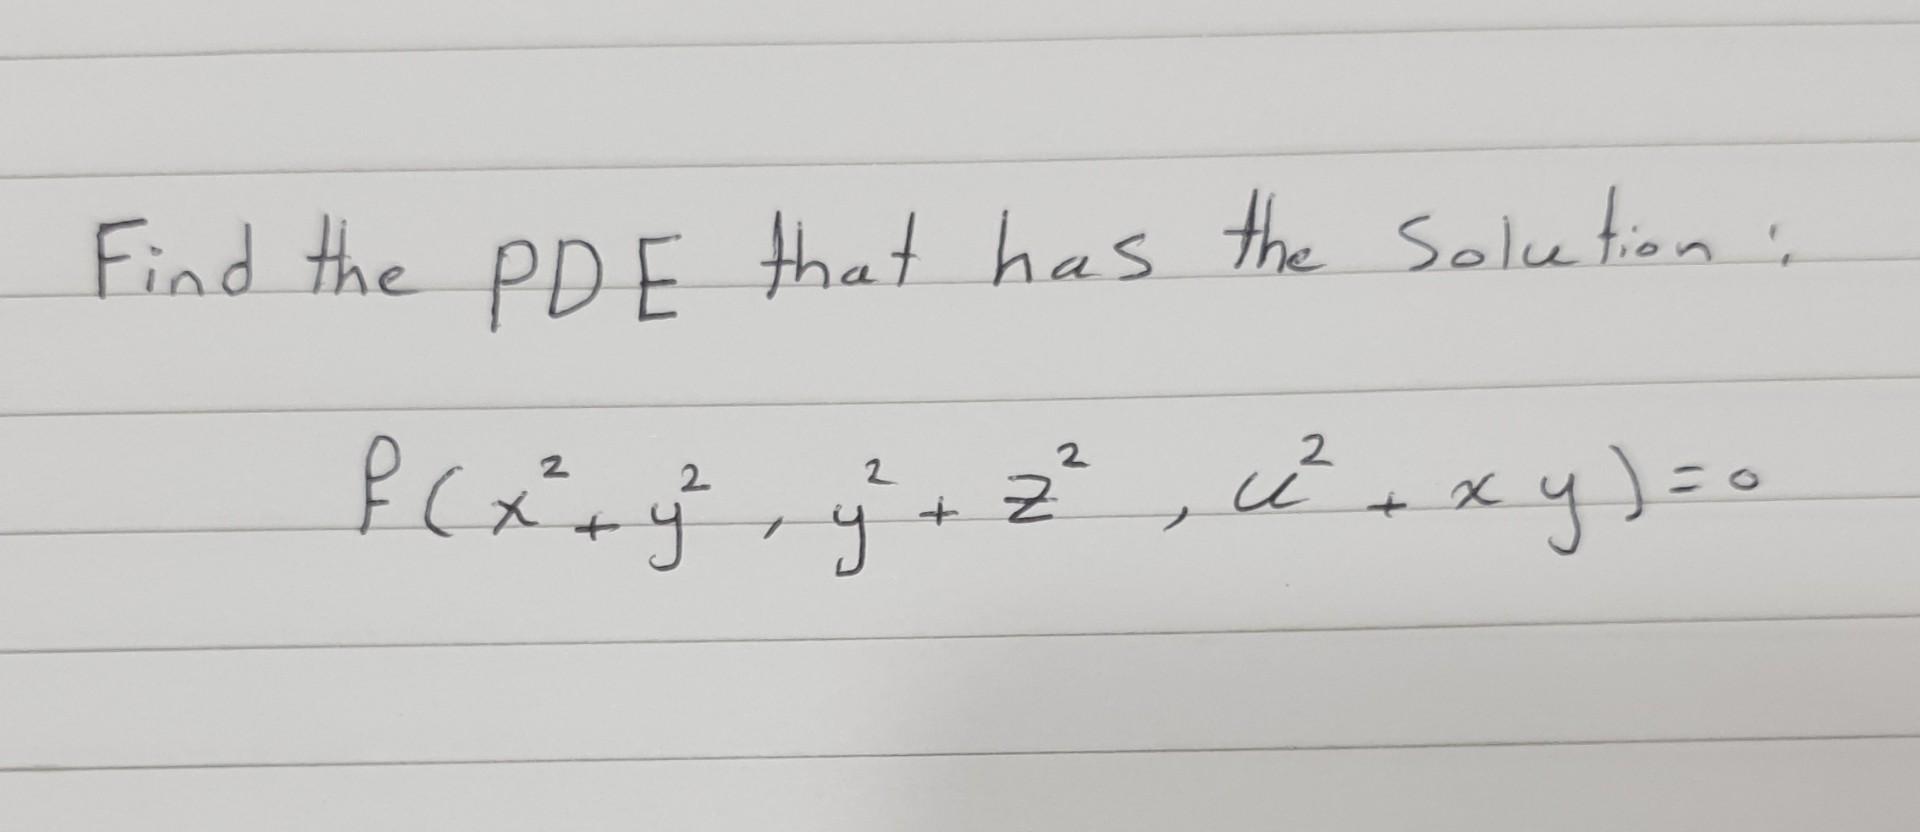 Find the PDE that has the Solution :
f(x² + y² , y² + z² , u² + xy) = 0